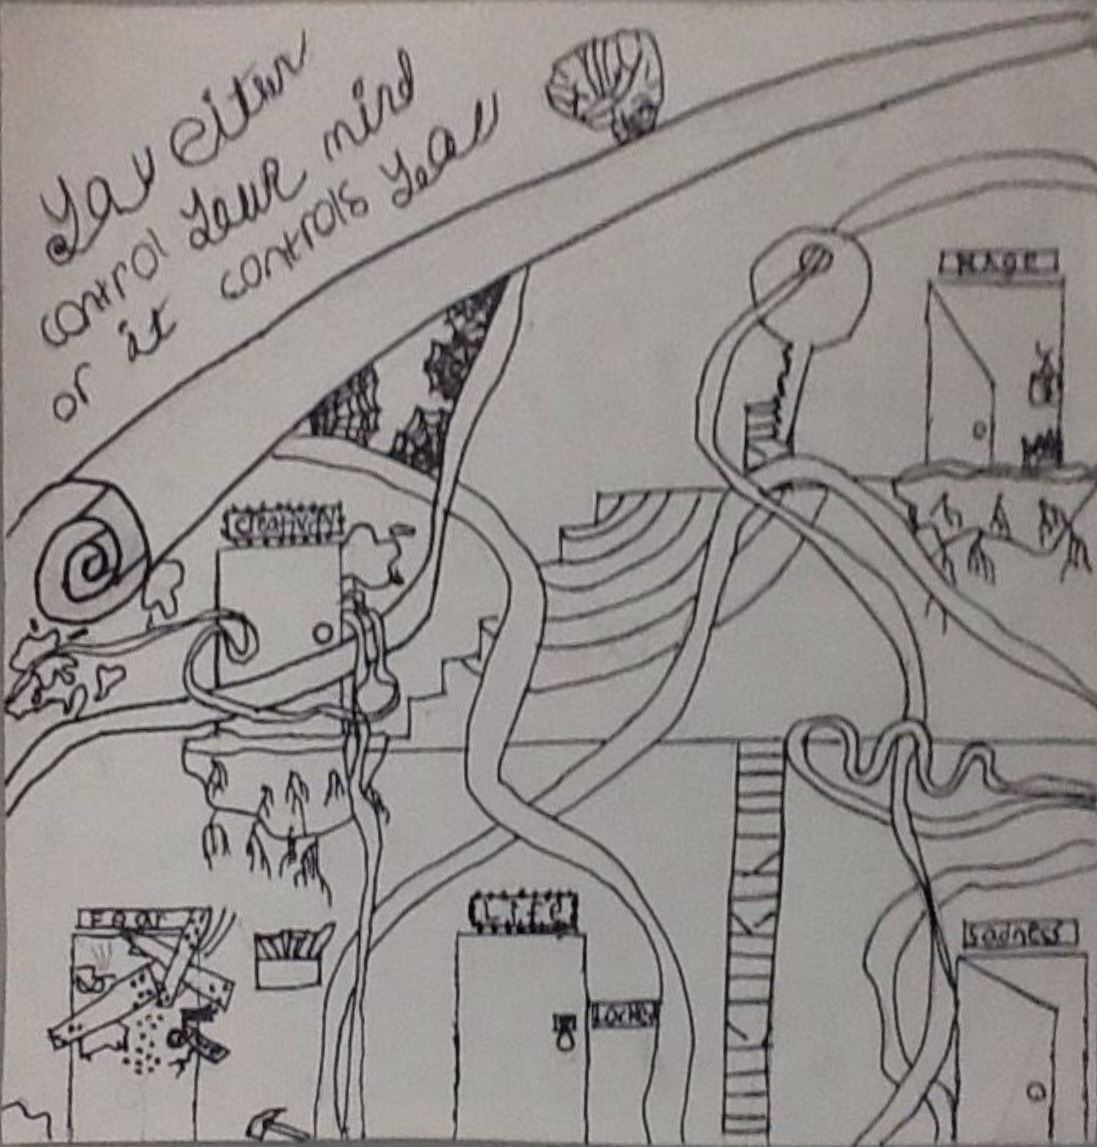 You eiter
control your mind
or it controls you
RAGE
creativity
Fear
LIFE
Sadness
Locked